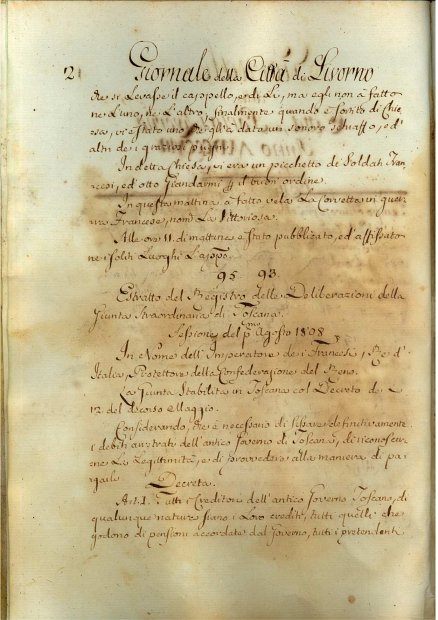 2
Giornale della Città di Livorno
che si levasse il cappello, ed i Li, ma egli non à fatto
ne l'uno, ne l'altro, finalmente quando è sortito di Chie
sa, vi è stato uno gli à data un sonoro schiaffo, ed
altri dei graziosi pugni.
In detta Chiesa, vi era un picchetto di Soldati Fran
cesi, ed otto Giandarmi il buon ordine.
In questa mattina à fatto vela La Corvetta in guer
ra Francese, nom. La Vittoriosa.
Alle ore 11. di mattina è stato pubblicato, ed affissato
ne i soliti Luoghi L'app.
95 - 93.
Estratto del Registro delle Deliberazioni della
Giunta Straordinaria di Toscana.
Sessione del p.mo Agosto 1808.
In Nome dell'Imperatore de i Francesi, Re d'
Italia, Protettore della Confederazione del Reno.
La Giunta Stabilita in Toscana col Decreto de
12 del decorso Maggio.
Considerando, che è necessario di fissare definitivamente
i debiti arretrati dell'antico Governo di Toscana, di riconoscer
ne La Legittimità, e di provvedere alla maniera di pa
garli.
Decreta.
Art. I. Tutti i Creditori dell'antico Governo Toscano, di
qualunque natura siano i Loro crediti, tutti quelli che
godono di pensioni accordate dal Governo, tutti i pretendenti